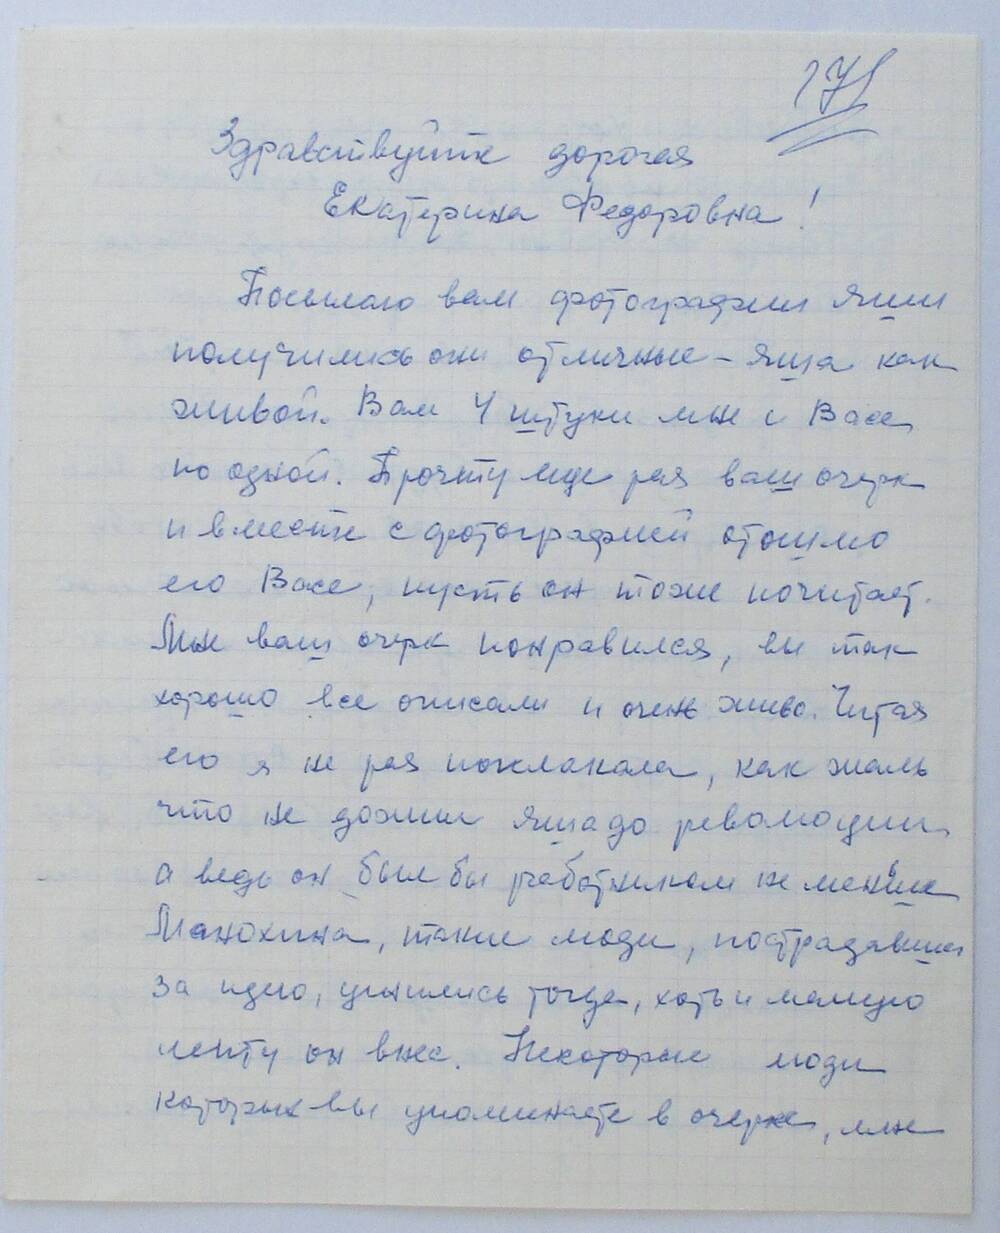 171
Здравствуйте дорогая
Екатерина Федоровна!
Посылаю вам фотографии Яши
получились они отличные - Яша как
живой. Вам 4 штуки мне и Васе
по одной. Прочту еще раз ваш очерк
и вместе с фотографией отошлю
его Васе, пусть он тоже почитает.
Мне ваш очерк понравился, вы так
хорошо все описали и очень живо. Читая
его я не раз поплакала, как жаль
что не дожил Яша до революции
а ведь он был бы работником не меньше
Манохина, такие люди, пострадавшие
за идею, ценились тогда, хоть и малую
лепту он внес. Некоторые люди
которых вы упоминаете в очерке, мне